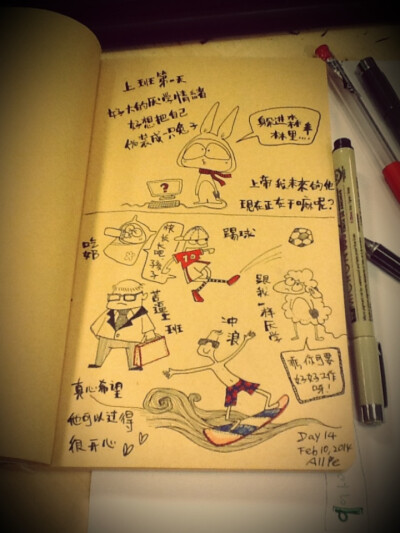 上班第一天
好大的厌学情绪
好想把自己
伪装成一只兔子
躲进森
林里...
?
上帝 我未来的他
现在正在干嘛呢?
吃奶
快长大吧
孩子
踢球
10
苦逼上班
冲浪
跟我一样厌学
你可要
好好工作
呀!
真心希望
他可以过得
很开心
Day 14
Feb 10, 2014
AllPe